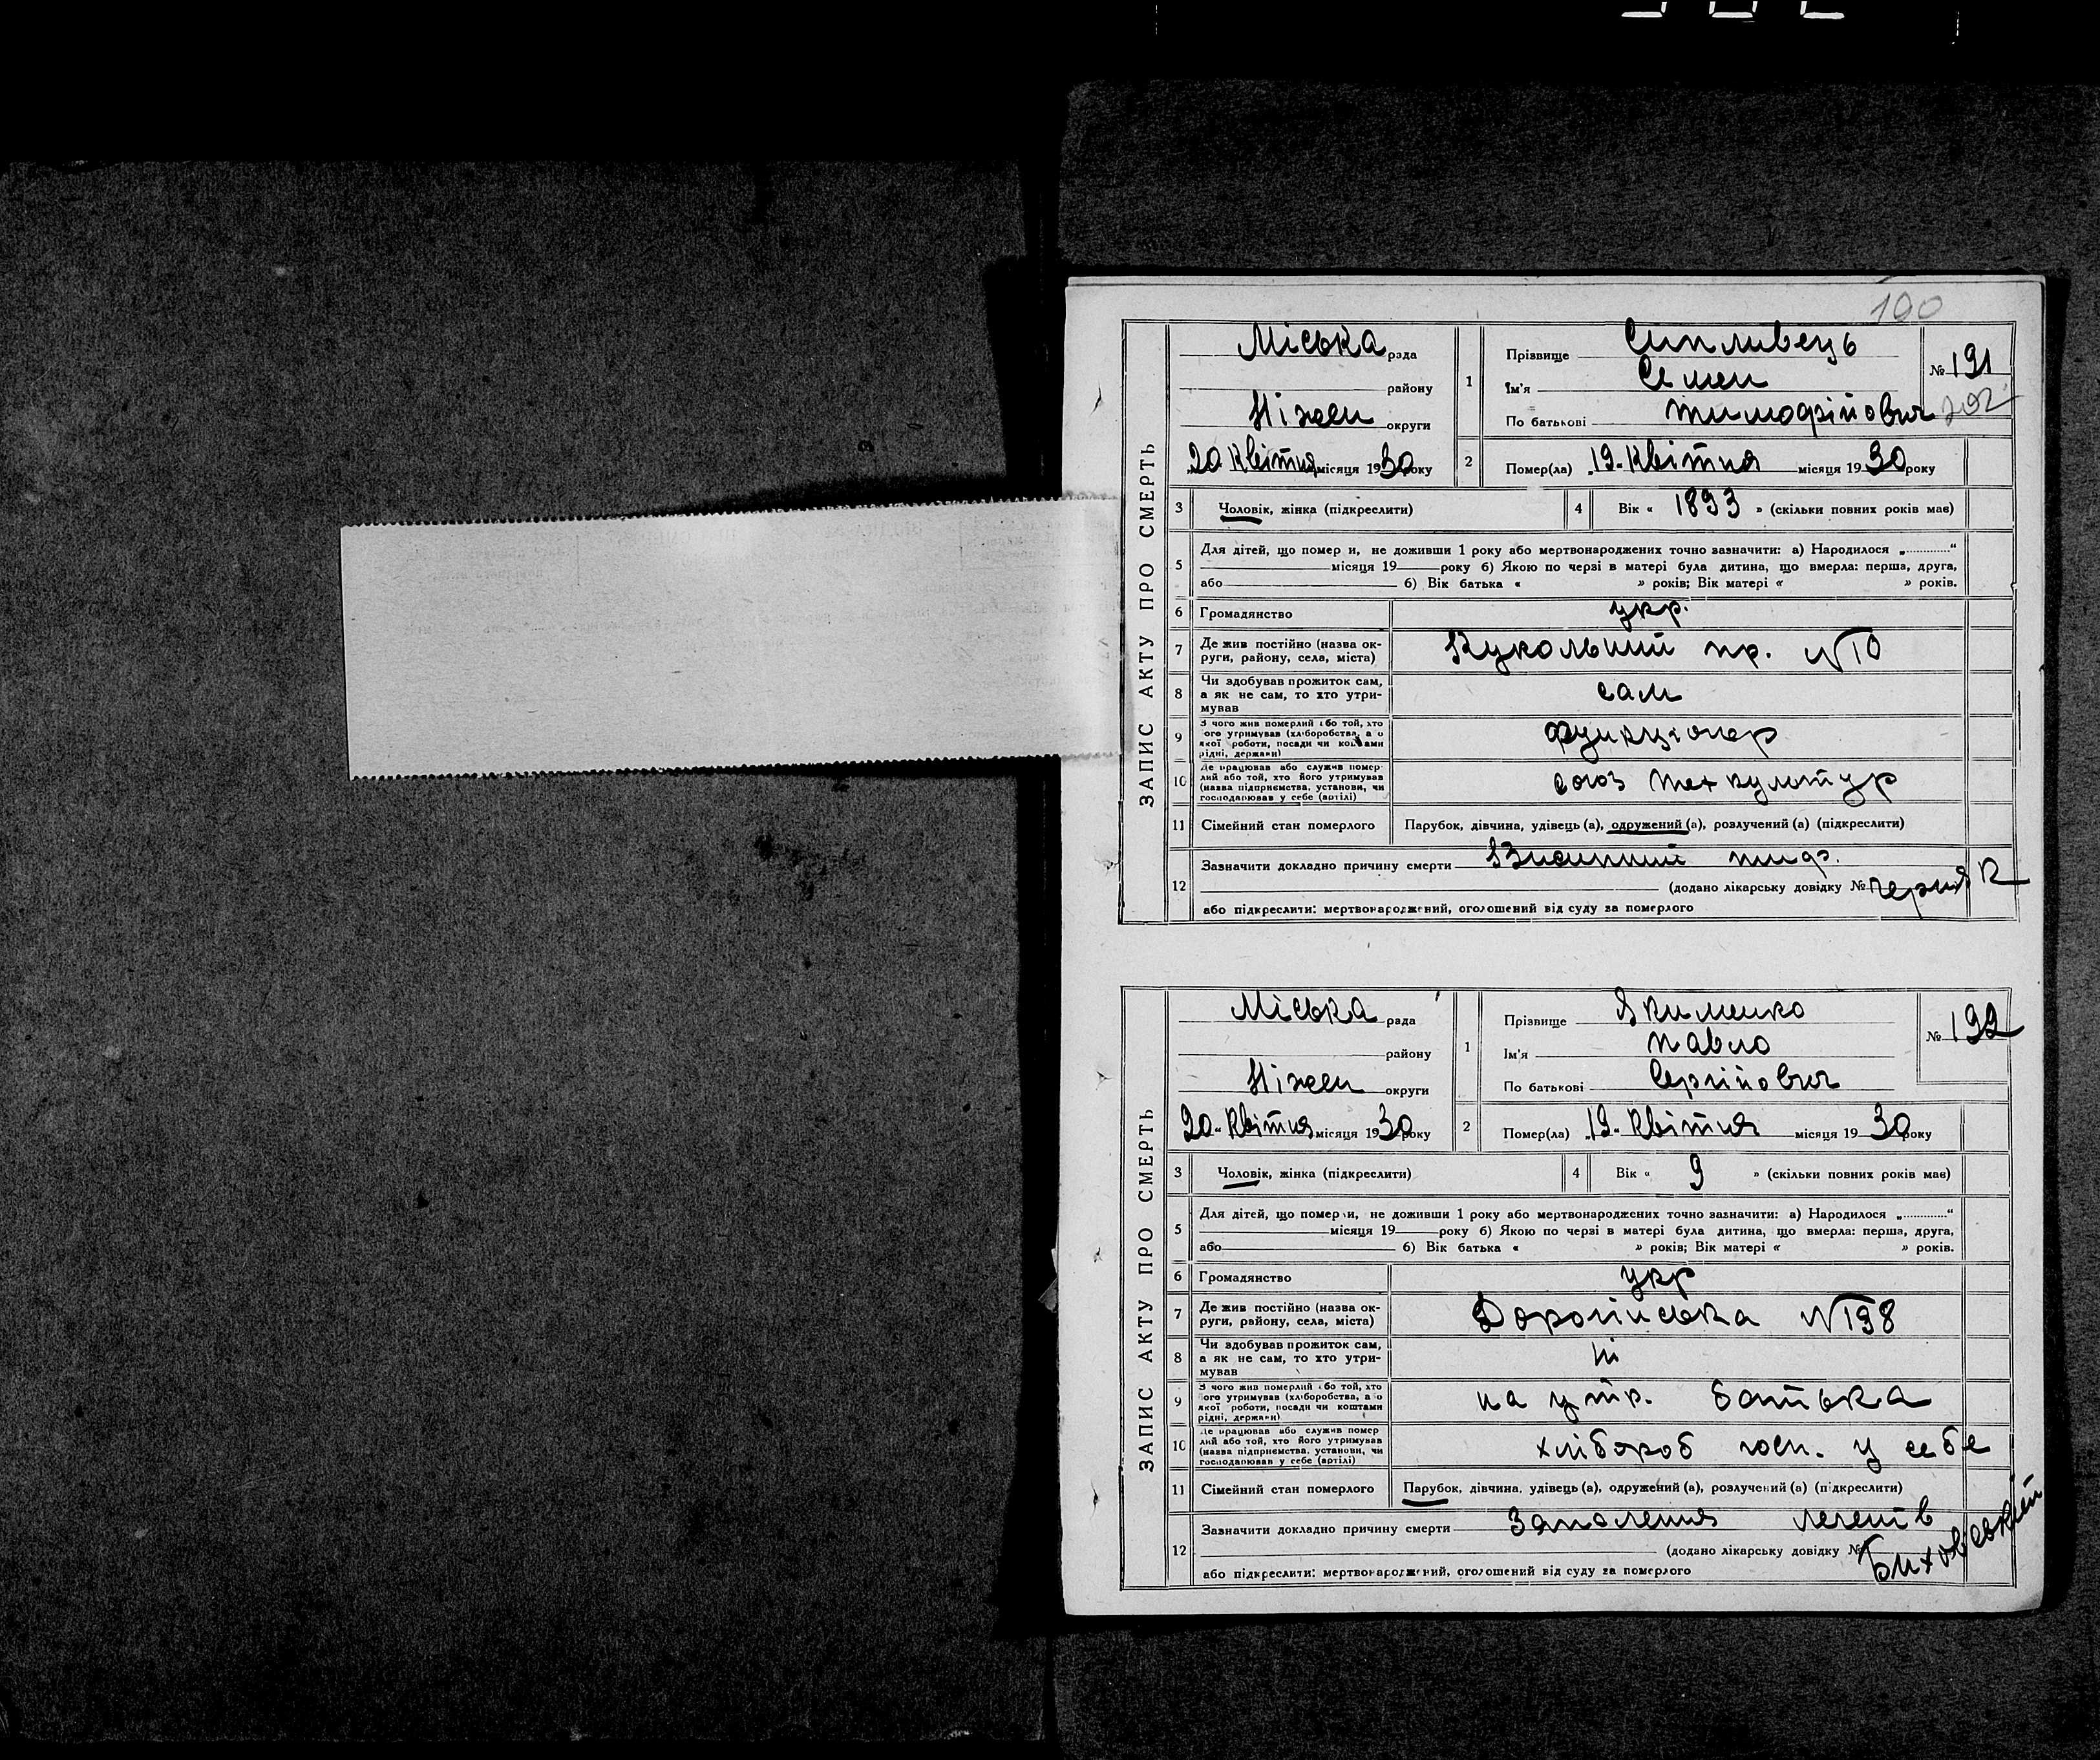 190
ЗАПИС АКТУ ПРО СМЕРТЬ
Міська рада
району
Ніжен округи
20 Квітня місяця 1930 року
1
Прізвище Сипливець
Ім'я Семен
По батькові Тимофійович
№ 191
202
2 Помер(ла) „19. Квітня місяця 1930 року
3 Чоловік, жінка (підкреслити)
4 Вік « 1893 » (скільки повних років має)
5 Для дітей, що помер и, не доживши 1 року або мертвонароджених точно зазначити: а) Народилося „............“
місяця 19 року б) Якою по черзі в матері була дитина, що вмерла: перша, друга,
або 6) Вік батька « » років; Вік матері « » років.
6 Громадянство укр.
7 Де жив постійно (назва ок-
руги, району, села, міста) Кукольний пр. №10
8 Чи здобував прожиток сам,
а як не сам, то хто утри-
мував сам
9 З чого жив померлий або той, хто
ого утримував (хліборобства, а о
якої роботи, посади чи коштами
рідні, держави) функціонер
10 Де працював або служив помер-
лий або той, хто його утримував
(назва підприємства, установи, чи
господарював у себе (артілі) союз тех культур
11 Сімейний стан померлого Парубок, дівчина, удівець (а), одружений (а), розлучений (а) (підкреслити)
12 Зазначити докладно причину смерти Висипний тиф.
(додано лікарську довідку № Черняк
або підкреслити: мертвонароджений, оголошений від суду за померлого
ЗАПИС АКТУ ПРО СМЕРТЬ
Міська рада
району
Ніжен округи
20. Квітня місяця 1930 року
1
Прізвище Якименко
Ім'я Павло
По батькові Сергійович
№ 192
2 Помер(ла) „19. Квітня місяця 1930 року
3 Чоловік, жінка (підкреслити)
4 Вік « 9 » (скільки повних років має)
5 Для дітей, що помер и, не доживши 1 року або мертвонароджених точно зазначити: а) Народилося „............“
місяця 19 року б) Якою по черзі в матері була дитина, що вмерла: перша, друга,
або 6) Вік батька « » років; Вік матері « » років.
6 Громадянство укр
7 Де жив постійно (назва ок-
руги, району, села, міста) Дорогінська №198
8 Чи здобував прожиток сам,
а як не сам, то хто утри-
мував ні
9 З чого жив померлий або той, хто
ого утримував (хліборобства, а о
якої роботи, посади чи коштами
рідні, держави) на утр. батька
10 Де працював або служив помер
лий або той, хто його утримував
(назва підприємства, установи, чи
господарював у себе (артілі) хлібороб госп. у себе
11 Сімейний стан померлого Парубок, дівчина, удівець (а), одружений (а), розлучений (а) (підкреслити)
12 Зазначити докладно причину смерти Запалення легенів
(додано лікарську довідку № Биховський
або підкреслити: мертвонароджений, оголошений від суду за померлого